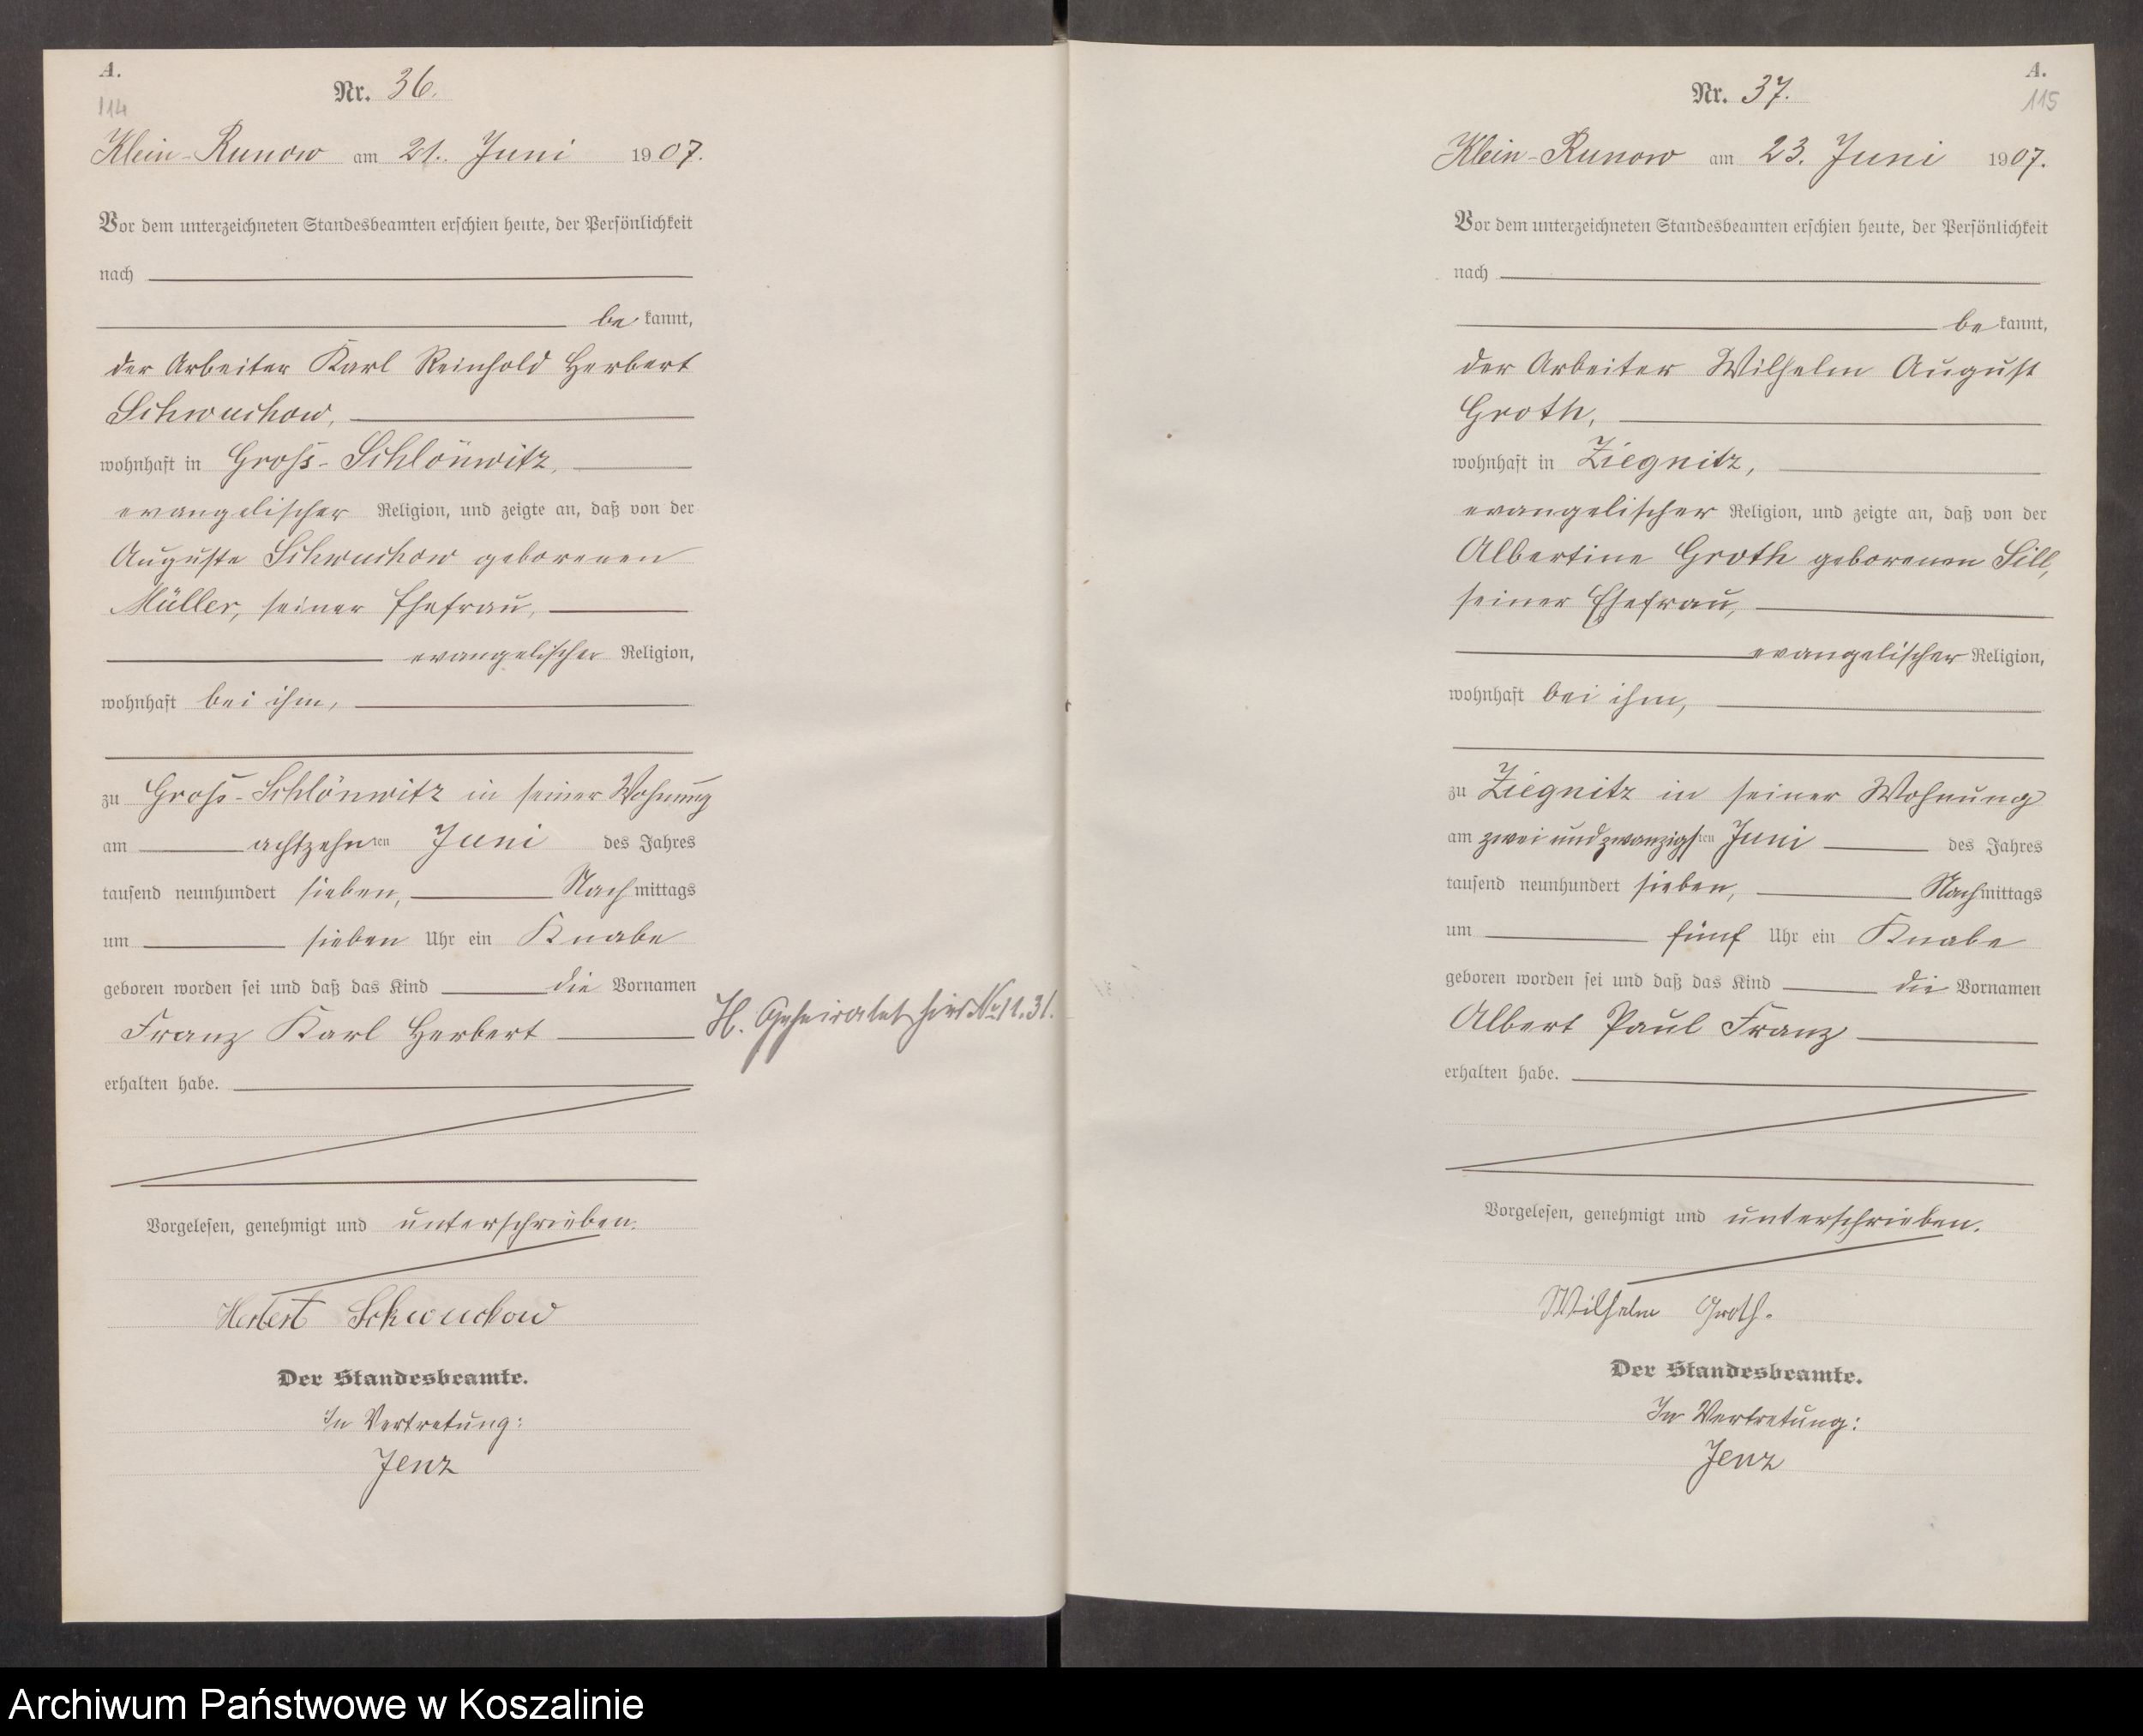 A.
114
Nr. 36.
Klein-Runow am 21. Juni 1907.
Vor dem unterzeichneten Standesbeamten erschien heute, der Persönlichkeit
nach
be kannt,
der Arbeiter Karl Reinhold Herbert
Schwuchow,
wohnhaft in Gross-Schlönwitz,
evangelischer Religion, und zeigte an, daß von der
Auguste Schwuchow geborenen
Müller, seiner Ehefrau,
evangelischer Religion,
wohnhaft bei ihm,
zu Gross-Schlönwitz in seiner Wohnung
am achtzehnten Juni des Jahres
tausend neunhundert sieben, Nachmittags
um sieben Uhr ein Knabe
geboren worden sei und daß das Kind die Vornamen
Franz Karl Herbert
H. Geheiratet hier No 11.31.
erhalten habe.
Vorgelesen, genehmigt und unterschrieben.
Herbert Schwuchow
Der Standesbeamte.
In Vertretung:
Jenz
A.
115
Nr. 37.
Klein-Runow am 23. Juni 1907.
Vor dem unterzeichneten Standesbeamten erschien heute, der Persönlichkeit
nach
be kannt,
der Arbeiter Wilhelm August
Groth,
wohnhaft in Ziegnitz,
evangelischer Religion, und zeigte an, daß von der
Albertine Groth geborenen Sill,
seiner Ehefrau,
evangelischer Religion,
wohnhaft bei ihm,
zu Ziegnitz in seiner Wohnung
am zwei und zwanzigsten Juni des Jahres
tausend neunhundert sieben, Nachmittags
um fünf Uhr ein Knabe
geboren worden sei und daß das Kind die Vornamen
Albert Paul Franz
erhalten habe.
Vorgelesen, genehmigt und unterschrieben.
Wilhelm Groth.
Der Standesbeamte.
In Vertretung:
Jenz
Archiwum Państwowe w Koszalinie